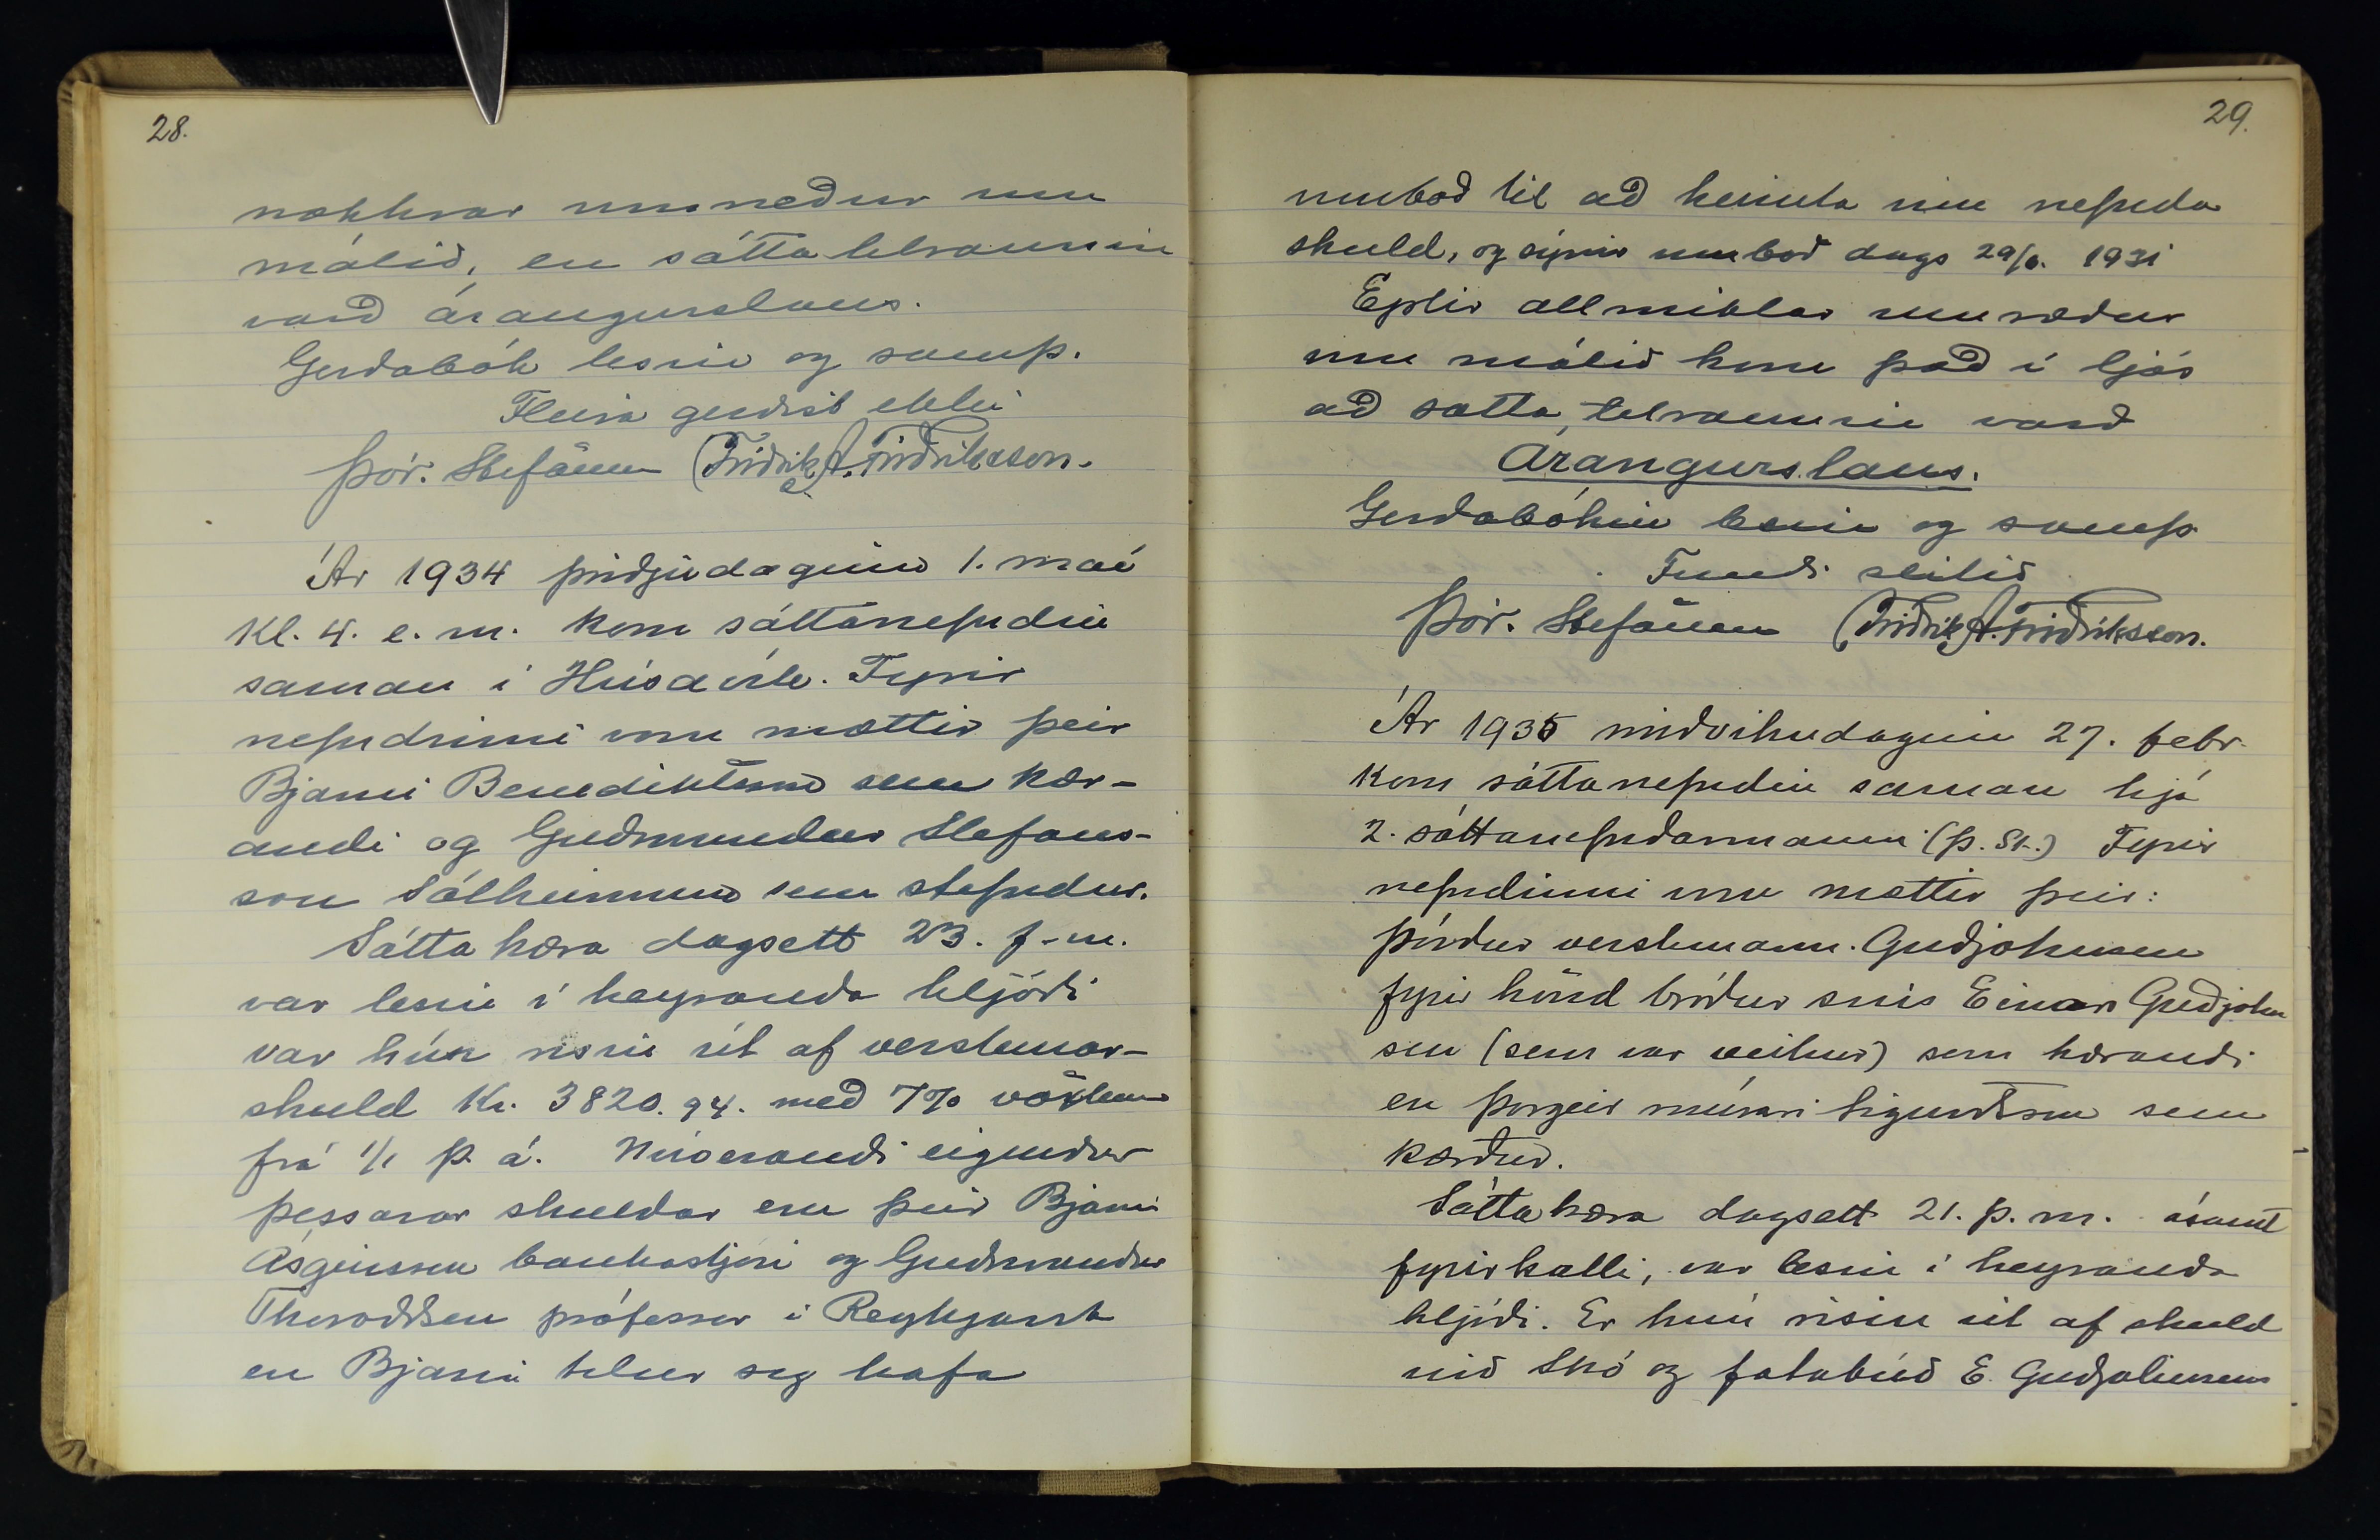 28.
nokkrar umræður um
málið, en sátta tilraunin
varð árangurslaus.
Gerðabók lesin og samþ.
Fleira gerðist ekki
Þór. Stefánss Friðrik A. Friðriksson.
Ár 1934 þriðjudaginn 1. maí
Kl. 4. e. m. kom sáttanefndin
saman í Húsavík. Fyrir
nefndinni voru mættir þeir
Bjarni Benediktsson sem kær-
andi og Guðmundur Stefáns-
son Sólheimum sem stefndur.
Sátta kæra dagsett 23. f.m.
var lesin í heyranda hljóði
var hún risin út af verslunar-
skuld Kr. 3820.94. með 7% vöxtum
frá 1/1 þ. á. Núverandi eigendur
þessarar skuldar eru þeir Bjarni
Ásgeirsson bankastjóri og Guðmundur
Thoroddsen prófessor í Reykjavík
en Bjarni telur sig hafa
29.
umboð til að heimta inn nefnda
skuld, og sýnir umboð dags 29/6. 1931
Eptir allmiklar umræður
um málið kom það í ljós
að sátta tilraunin varð
Árangurslaus.
Gerðabókin lesin og samþ
Fundi slitið
Þór. Stefánss Friðrik A. Friðriksson.
Ár 1935 miðvikudaginn 27. febr.
kom sáttanefndin saman hjá
2. sáttanefndarmanni (Þ. St.) Fyrir
nefndinni voru mættir þeir:
Þórður verslunarm. Guðjohnsen
fyrir hönd bróður síns Einars Guðjohn
sen (sem var veikur) sem kærandi
en Þorgeir múrari Sigurðsson sem
kærður.
Sáttakæra dagsett 21. þ. m. ásamt
fyrirkalli, var lesin í heyranda
hljóði. Er hún risin út af skuld
við Skó og fatabúð E. Guðjohnsens